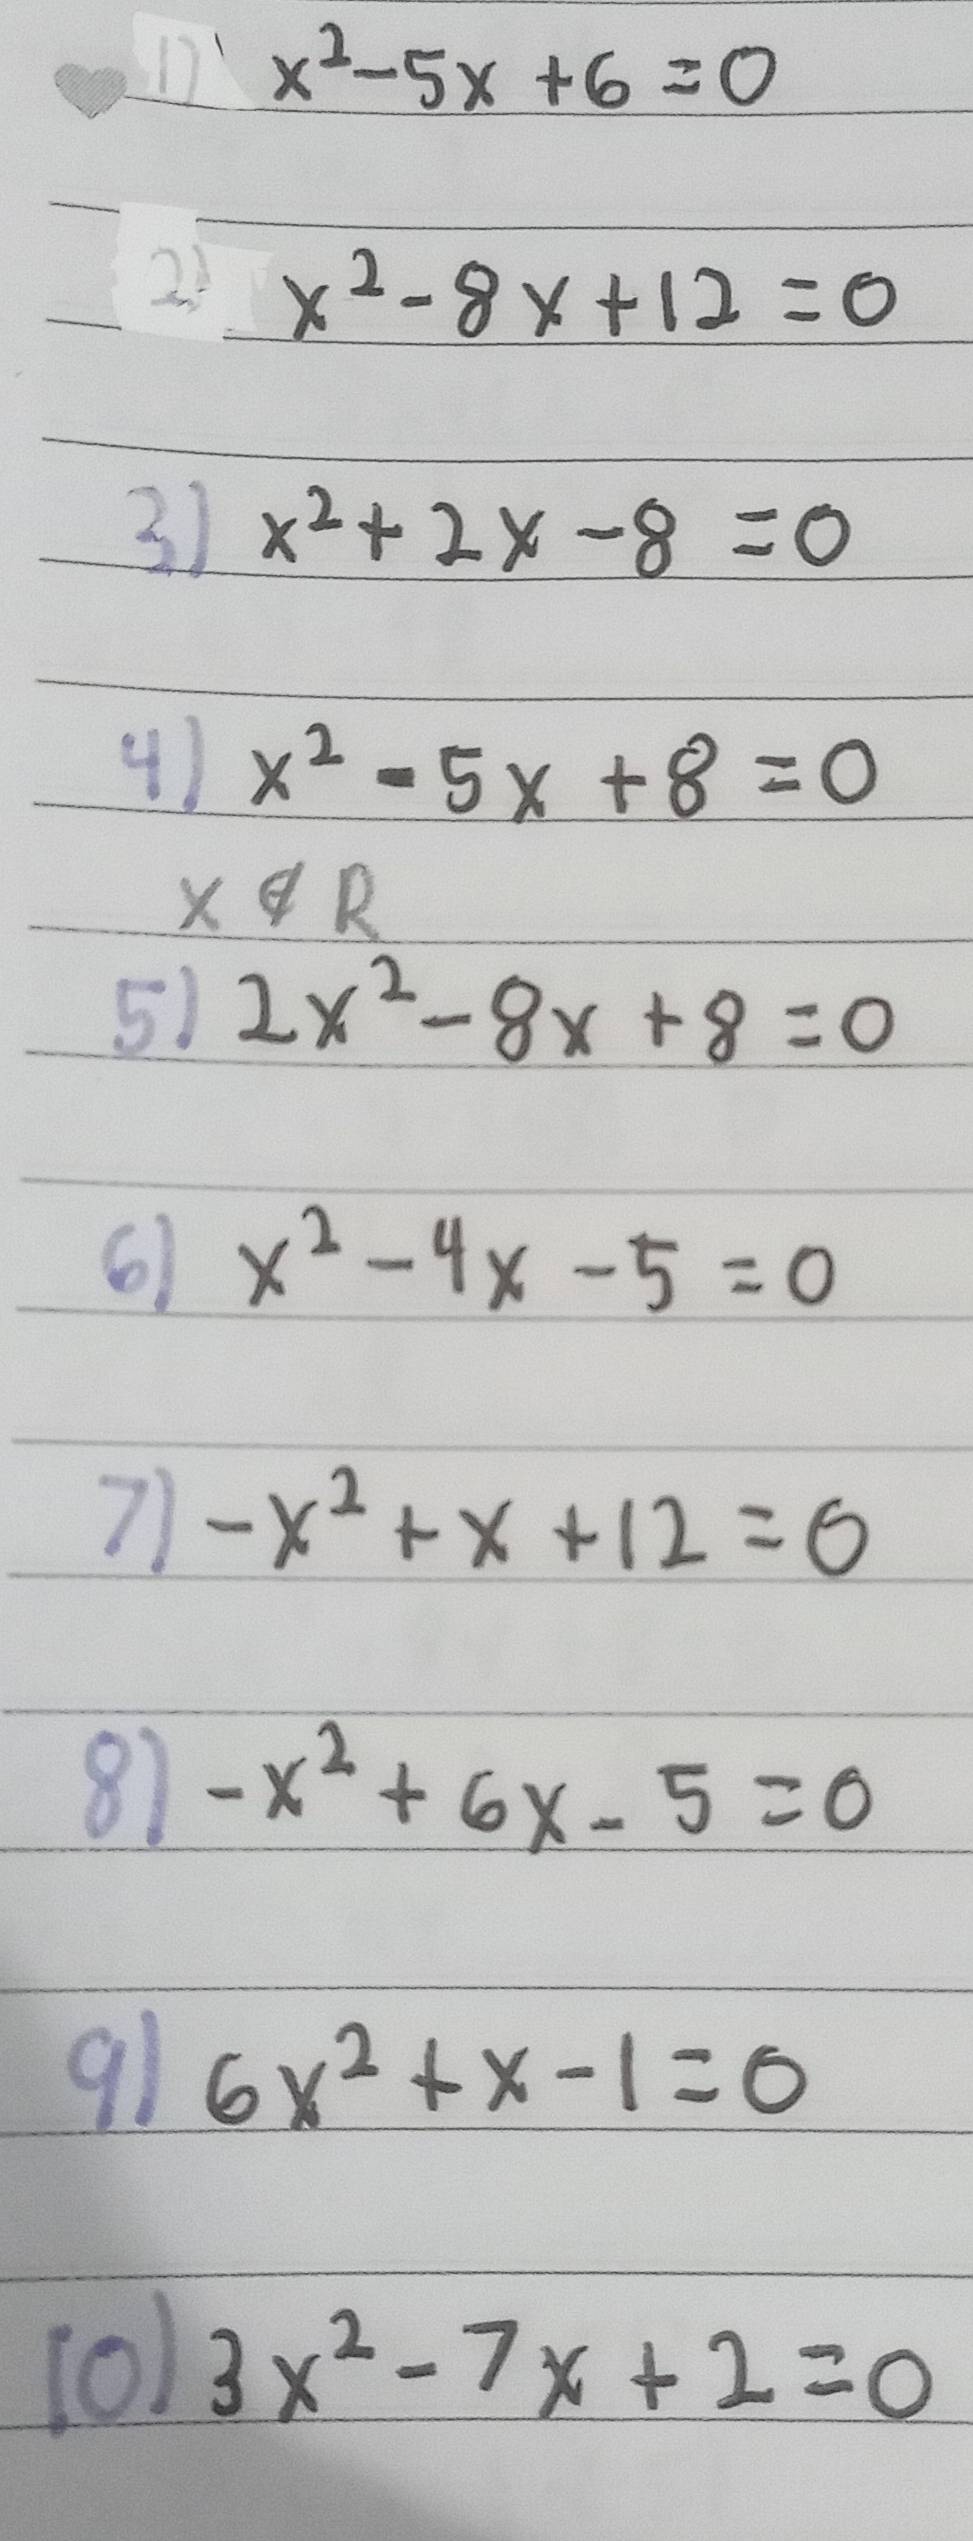 1) x² - 5x + 6 = 0
2) x² - 8x + 12 = 0
3) x² + 2x - 8 = 0
4) x² - 5x + 8 = 0
x ∉ R
5) 2x² - 8x + 8 = 0
6) x² - 4x - 5 = 0
7) -x² + x + 12 = 0
8) -x² + 6x - 5 = 0
9) 6x² + x - 1 = 0
10) 3x² - 7x + 2 = 0